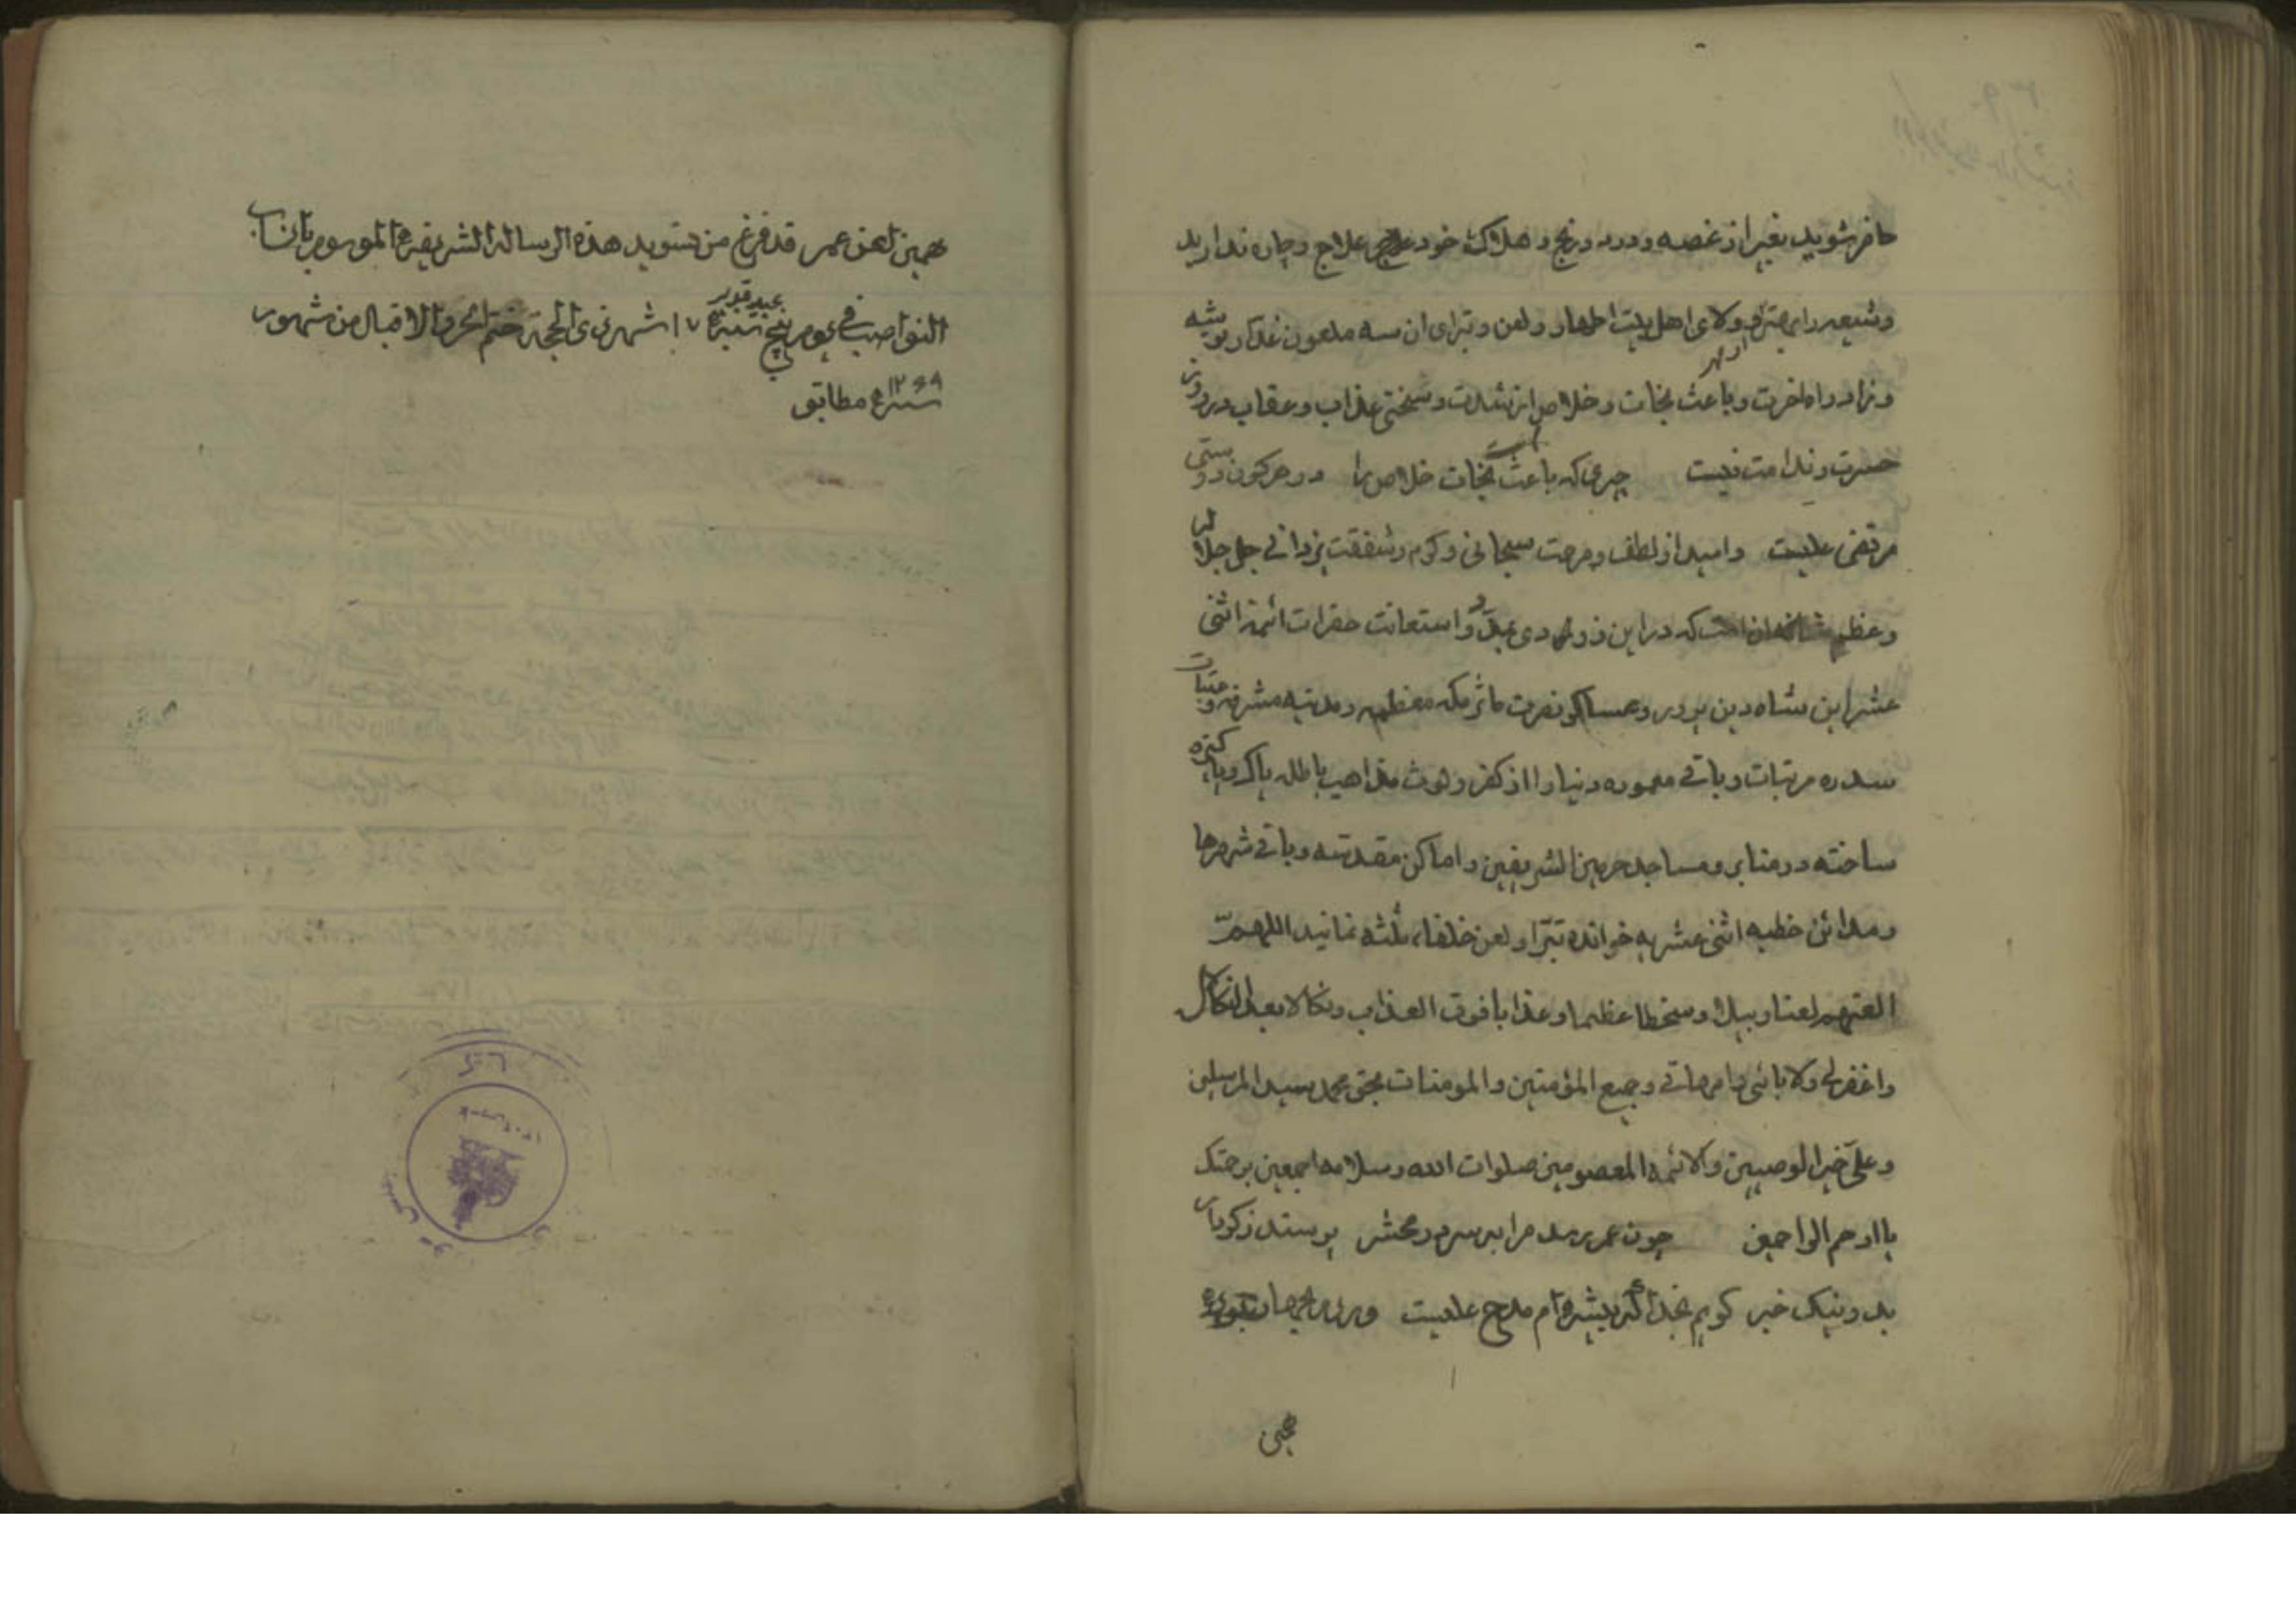 حاضر شوید بغیر از غصه و درد و رنج و هلاک خود علاج و چاره ندارید
و شیعه را بهتر از ولای اهل بیت اطهار و لعن و تبرای ان سه ملعون غدار توشه
و زاد راه اخرت و باعث نجات و خلاص از شدت و سختی عذاب و عقاب در روز
حسرت و ندامت نیست چیزی که باعث نجات است خلاص را در هر کون دوستی
مرتضی علیست و امید از لطف و مرحمت سبحانی و کرم و شفقت یزدانی جل جلاله
و عظم شانه ان است که در این زودی بمدد و استعانت حضرات ائمه اثنی
عشر این شاه دین پرور و عساکر نصرت ماثر مکه معظمه و مدینه مشرفه و عتبات
سدره مرتبات و باقی معموره دنیا را از کفر و لوث مذاهب باطله پاک و پاکیزه
ساخته در منابر و مساجد حرمین الشریفین و اماکن مقدسه و باقی شهرها
و مدائن خطبه اثنی عشریه خوانده تبرّا و لعن خلفاء ثلثه نمایند اللهمّ
العنهم لعنا وبیلا و سخطا عظیما و عذابا فوق العذاب و نکالا بعد النکال
واغفرلی ولابائی وامهاتی وجمیع المؤمنین والمومنات بحق محمد سید المرسلین
وعلی خیر الوصیین والائمه المعصومین صلوات الله وسلامه اجمعین برحمتک
یا ارحم الراحمین چون عمر رسد مرا بسر در محشر پرسند ز کردار
بد و نیک خبر کویم بخدا که پیشه ام مدح علیست
همین لعن عمر قد فرغ من تسوید هذه الرساله الشریفه الموسوم بانساب
النواصب فی یوم پنج شنبه عید غدیر ۱۷ شهر ذی الحجة ختم بالخیر والاقبال من شهور
سنه ۱۲۶۹ مطابق